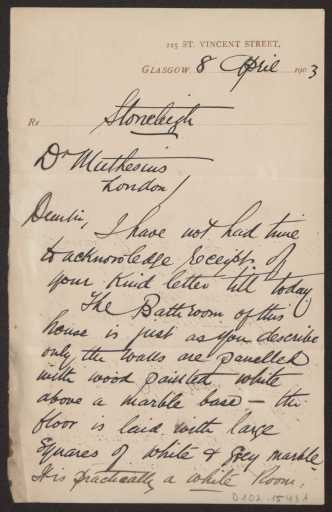 115 ST. VINCENT STREET,
GLASGOW 8 April 1903
Re Stoneleigh
Dr Muthesius
London
Dear Sir,
I have not had time
to acknowledge receipt of
your kind letter till today
The Bathroom of this
house is just as you describe
only the walls are panelled
with wood painted white
above a marble base – the
floor is laid with large
squares of white & grey marble
It is practically a white Room.